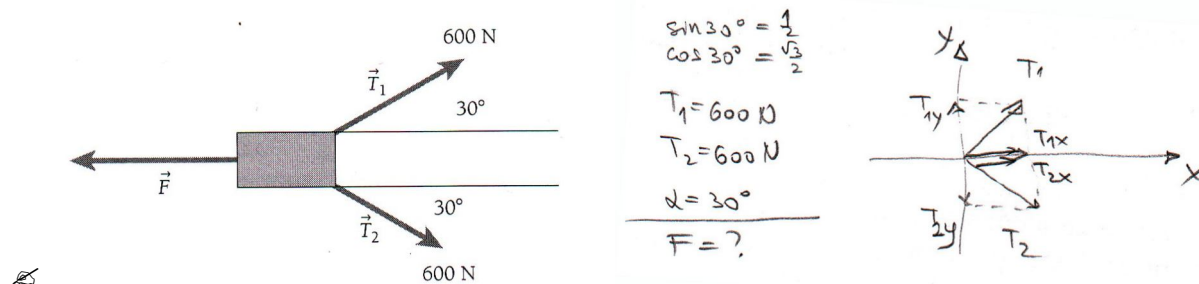 600 N
T⃗₁
30°
F⃗
30°
T⃗₂
600 N
sin30° = 1/2
cos30° = √3/2
T₁=600 N
T₂=600 N
α=30°
F=?
y
T₁
T₁y
T₁x
T₂x
x
T₂y
T₂